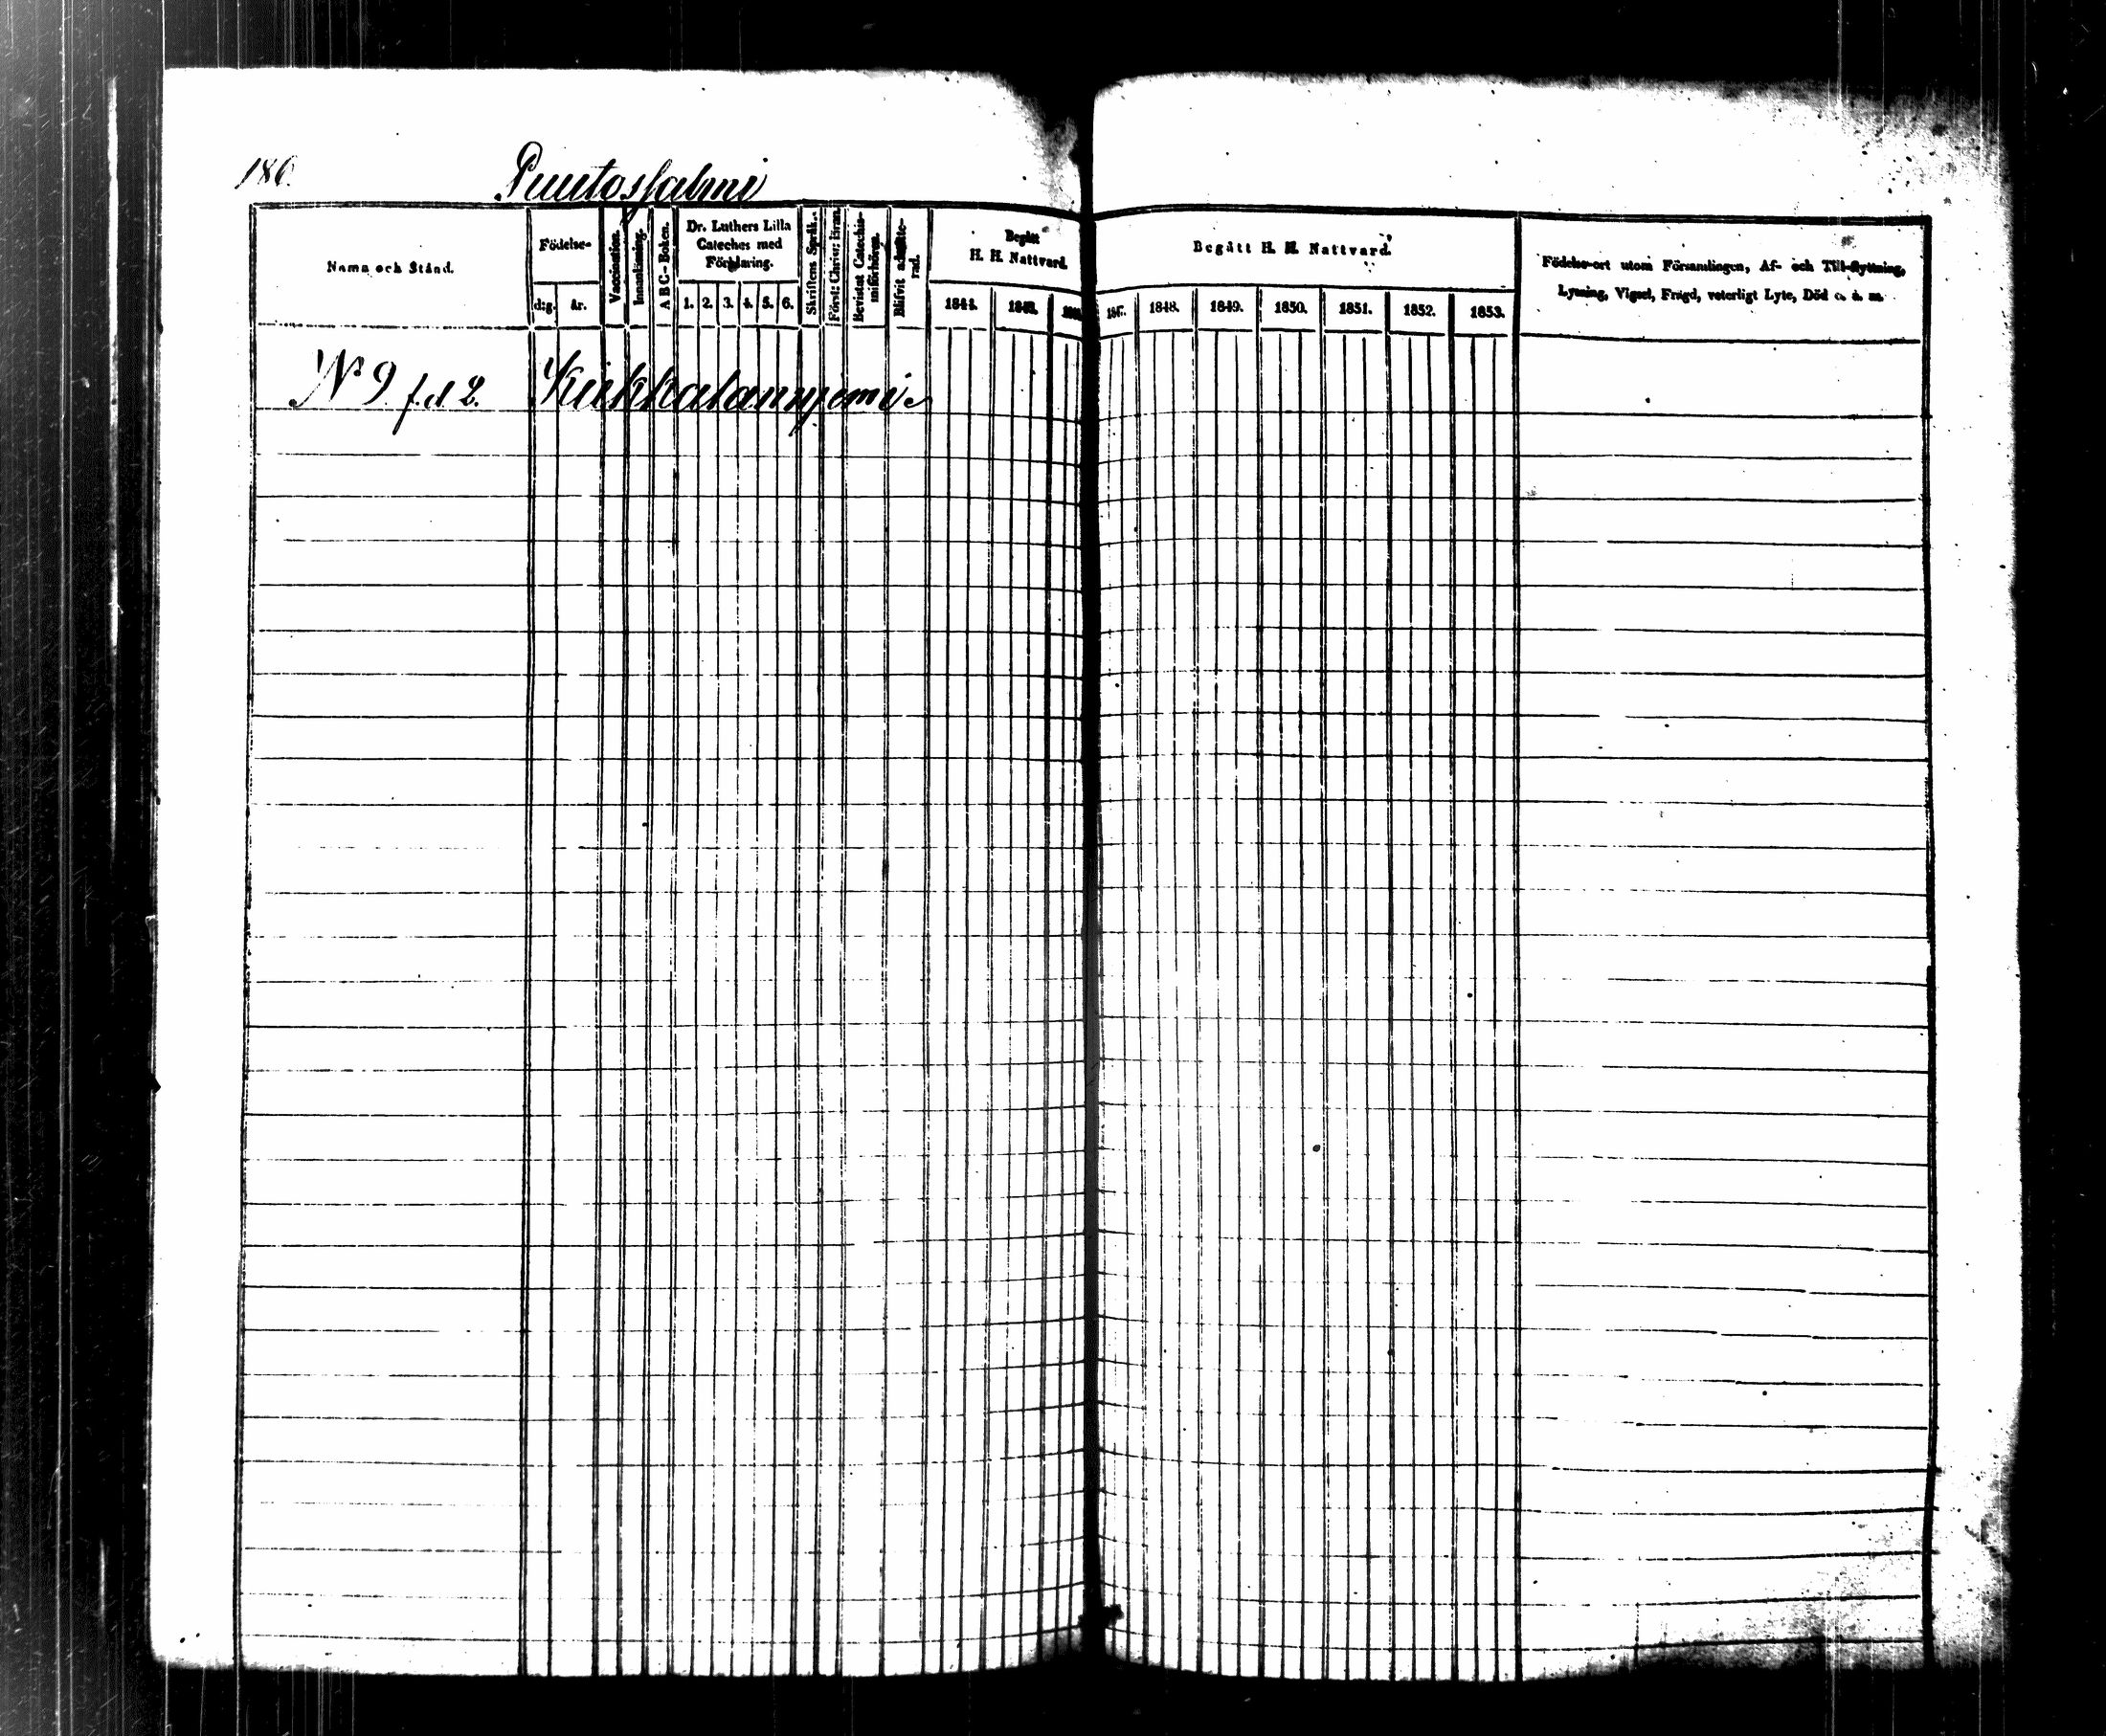 186.
Puutosfalmi
Namn och Stånd.
Födelse-
d:g.
år.
Vaccination.
Innanläsning.
A B C-Boken.
Dr. Luthers Lilla
Cateches med
Förklaring.
1. 2. 3. 4. 5. 6.
Skriftens Språk.
Först: Christ: läran.
Bevistat Catechis-
miförhören.
Blifvit admitte-
rad.
Begått
H. H. Nattvard.
1844. 1845. 1846.
Begått H. H. Nattvard.
1847. 1848. 1849. 1850. 1851. 1852. 1853.
Födelse-ort utom Församlingen, Af- och Till-flyttning,
Lysning, Vigsel, Frägd, veterligt Lyte, Död o. s. m.
N° 9 f.d 2. Kukkalannjemi